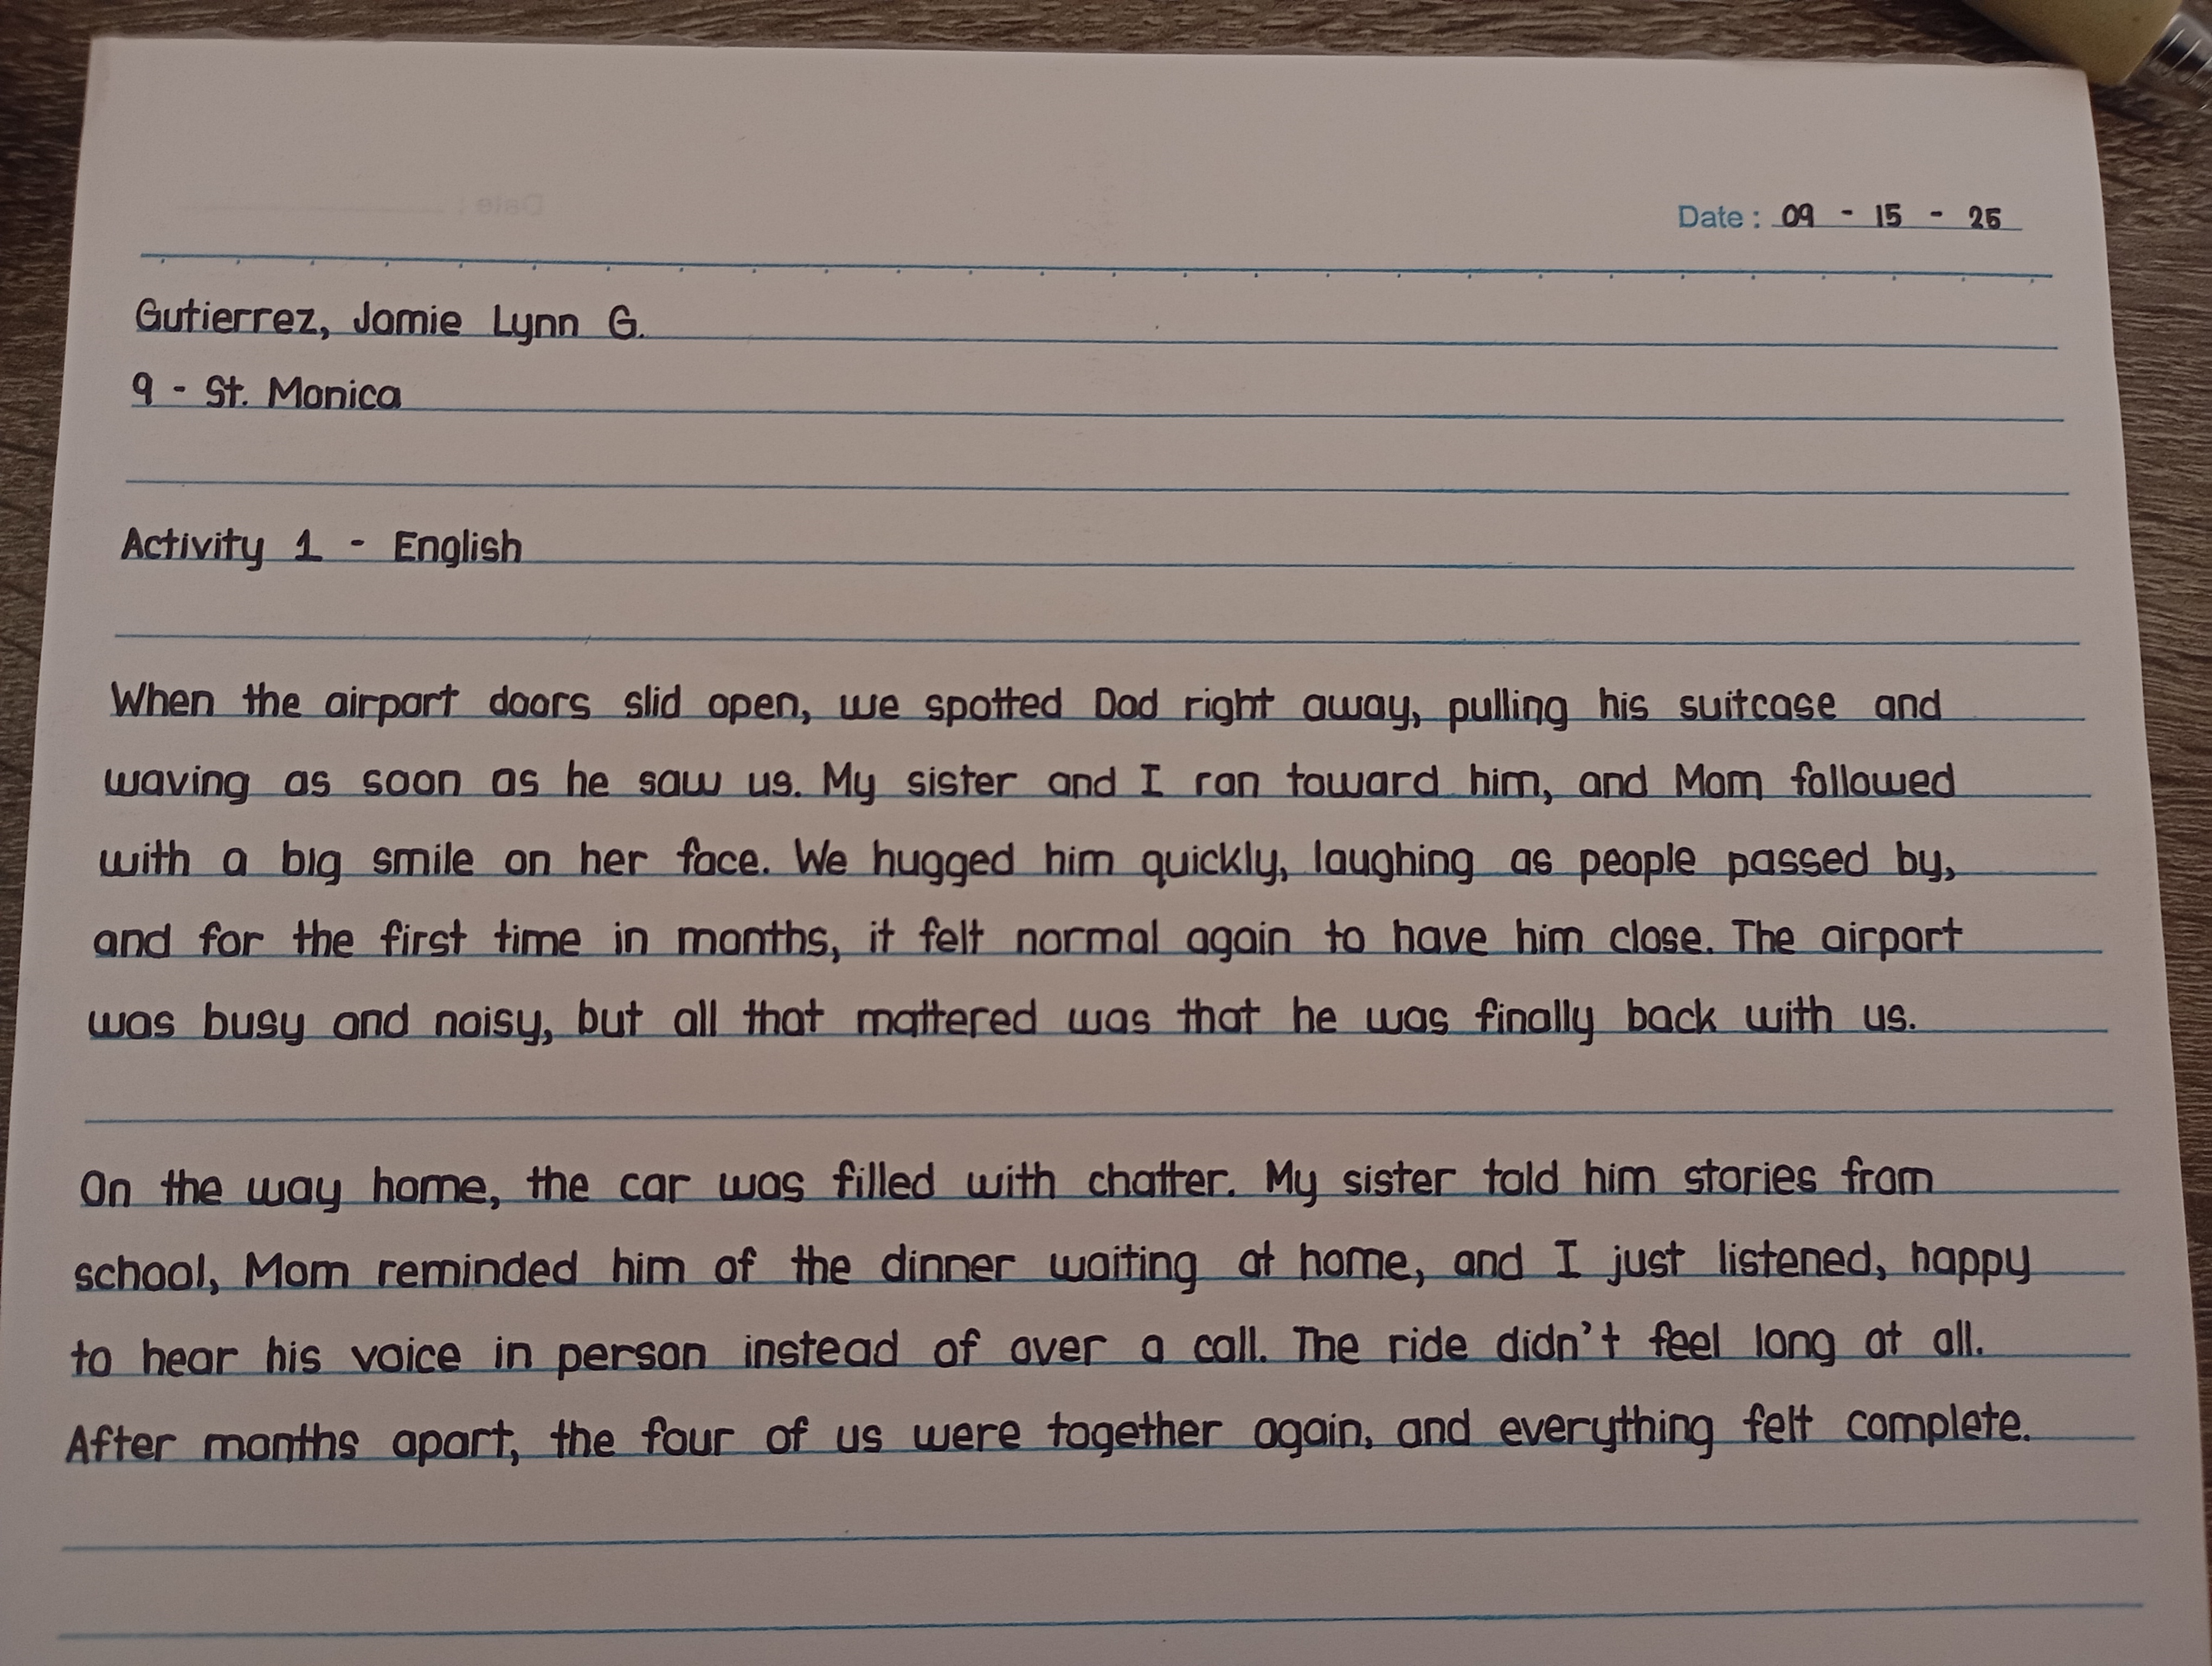 Date : 09 - 15 - 25
Gutierrez, Jamie Lynn G.
9 - St. Monica
Activity 1 - English
When the airport doors slid open, we spotted Dad right away, pulling his suitcase and
waving as soon as he saw us. My sister and I ran toward him, and Mom followed
with a big smile on her face. We hugged him quickly, laughing as people passed by,
and for the first time in months, it felt normal again to have him close. The airport
was busy and noisy, but all that mattered was that he was finally back with us.
On the way home, the car was filled with chatter. My sister told him stories from
school, Mom reminded him of the dinner waiting at home, and I just listened, happy
to hear his voice in person instead of over a call. The ride didn't feel long at all.
After months apart, the four of us were together again, and everything felt complete.